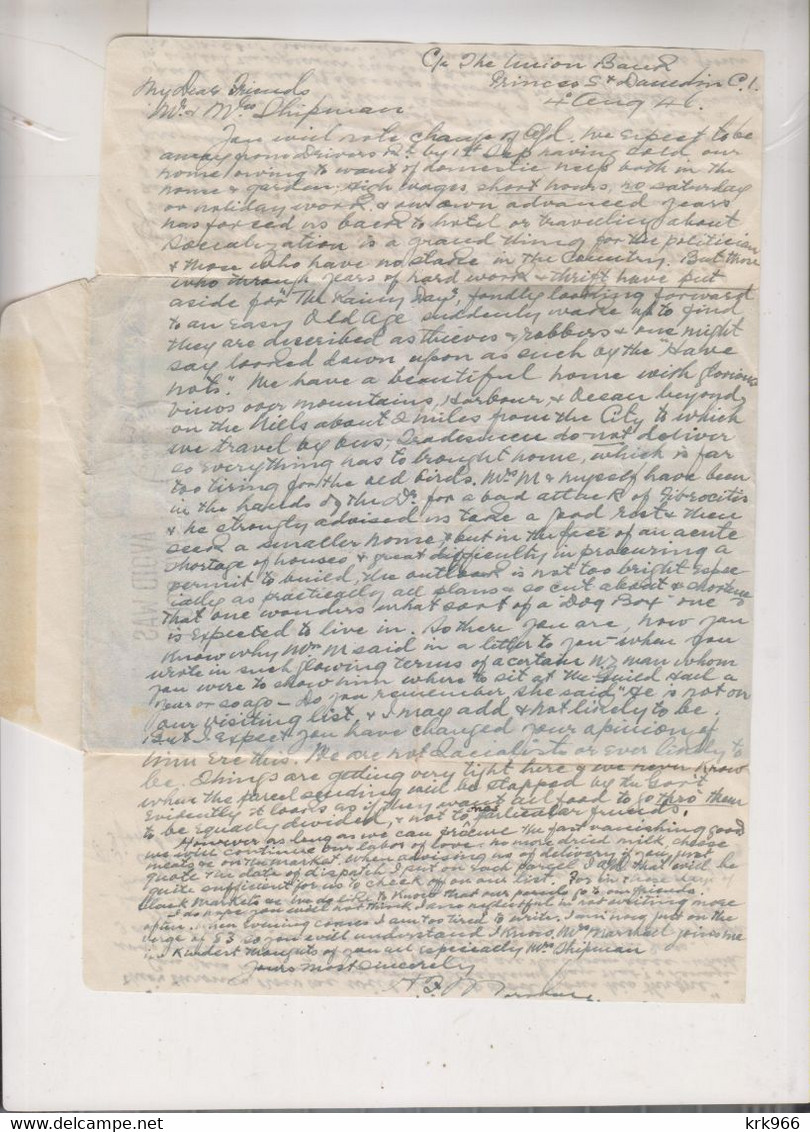 C/o The Union Bank
Princes St Dunedin C.1.
4th Aug 46.
My Dear Friends
Mr & Mrs Shipman
You will note change of Add. We expect to be
away from Drivers Rd by 1st Sep having sold our
home owing to want of domestic help both in the
home & garden, high wages, short hours, no saturday
or holiday work & our own advanced years
has forced us back to hotel or travelling about
Socialization is a grand thing for the politician
& those who have no stake in the Country. But those
who through years of hard work & thrift have put
aside for "The Rainy Day", fondly looking forward
to an Easy Old Age suddenly wake up to find
they are described as thieves & robbers & one might
say looked down upon as such by the "Have
nots". We have a beautiful home with glorious
views over mountains, Harbour & Ocean beyond
on the hills about 2 miles from the City to which
we travel by bus. Tradesmen do not deliver
so everything has to brought home, which is far
too tiring for the old birds. Mrs M & myself have been
in the hands of the Dr for a bad attack of fibrocitis
& he strongly advised us take a good rest & then
seek a smaller home & but in the face of an acute
shortage of houses & great difficulty in procuring a
permit to build, the outlook is not too bright espec-
ially as practically all plans & so cut about &
that one wonders what sort of a "Dog Box" one
is expected to live in. So there you are, now you
know why Mrs M said in a letter to you when you
wrote in such glowing terms of a certain N.Z man whom
you were to show him where to sit at the Guild Hall a
year or so ago - Do you remember, she said, "He is not on
our visiting list, & I may add & not likely to be.
But I expect you have changed your opinion of
him ere this. We are not Socialists or ever likely to
be. Things are getting very tight here & we never know
when the parcel sending will be stopped by the Gov't
Evidently it looks as if they want all food to go thro' them
to be equally divided, & not to particular friends.
However as long as we can procure the fast vanishing goods
we will continue our labor of love. no more dried milk, cheese
meats on the market when advising us of delivery if you just
quote the date of dispatch I put on each parcel that will be
quite sufficient for us to check off on our list. For in these days
black markets we like to know that our parcels go to our friends.
I do hope you will not think I am neglectful in not writing more
often. When Evening comes I am too tired to write. I am now just on the
verge of 83 so you will understand I know. Mrs Marshall joins me
in kindest thoughts of you all especially Mrs Shipman
Yours Most Sincerely
AVOID
krk966